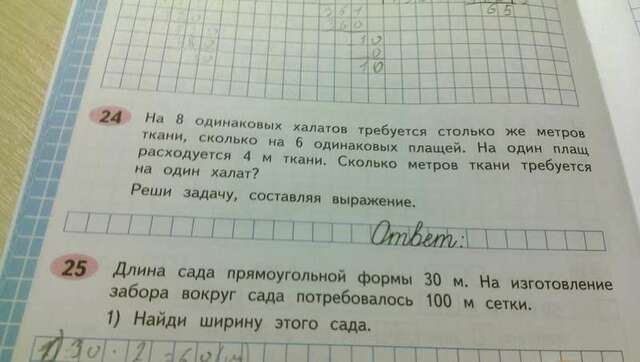 65
361
360
10
0
10
24
На 8 одинаковых халатов требуется столько же метров
ткани, сколько на 6 одинаковых плащей. На один плащ
расходуется 4 м ткани. Сколько метров ткани требуется
на один халат?
Реши задачу, составляя выражение.
Ответ:
25
Длина сада прямоугольной формы 30 м. На изготовление
забора вокруг сада потребовалось 100 м сетки.
1) Найди ширину этого сада.
1) 30 · 2 = 60 (м